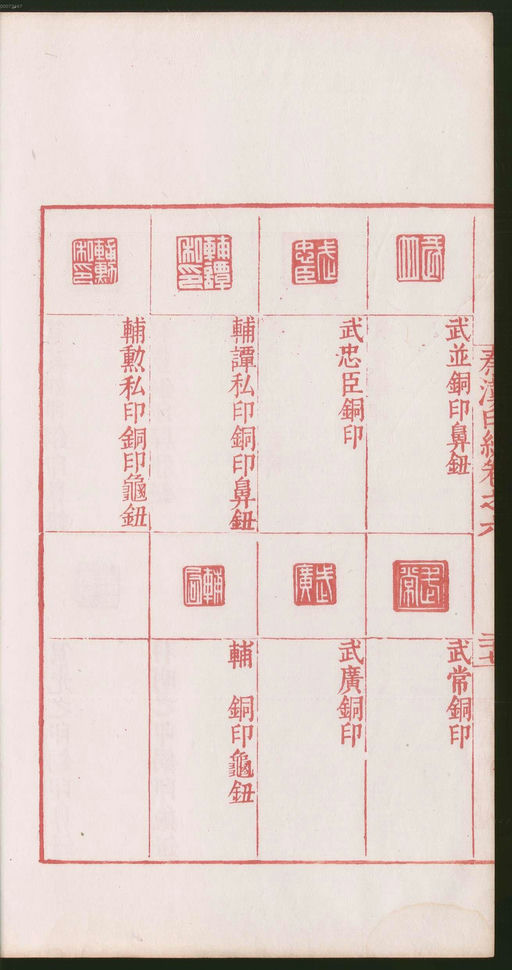 武並銅印鼻鈕
武忠臣銅印
輔譚私印銅印鼻鈕
輔勲私印銅印龜鈕
武常銅印
武廣銅印
輔　銅印龜鈕